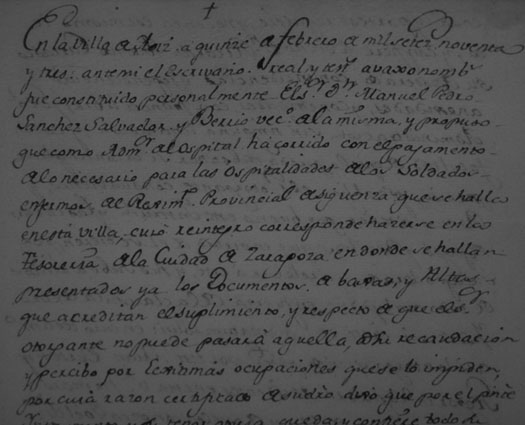 En la Villa de a quinze de febrero de mil setez. noventa
y tres: ante mi el Escrivano real y test. avaxo nomb.
fue constituido personalmente El Sr. Dn. Manuel Pedro
Sanchez Salvador y Berrio vec. de la misma, y propuso
que como Adm.or del Ospital ha corrido con el pasamento
de lo necesario para las Ospitalidades de los Soldados
enfermos del Rexim.to Provincial de Siguenza que se hallo
en esta villa, cuio reintegro corresponde hazerse en los
Tesoreria de la Ciudad de Zaragoza en donde se hallan
presentados ya los Documentos de baxas, y Altas
que acreditan el suplimento, y respecto de que el Sr.
otorgante no puede pasar a aquella, a su recaudacion
y percibo por ocupaciones que se lo impiden,
por cuia razon certificado de su dro dixo que por el